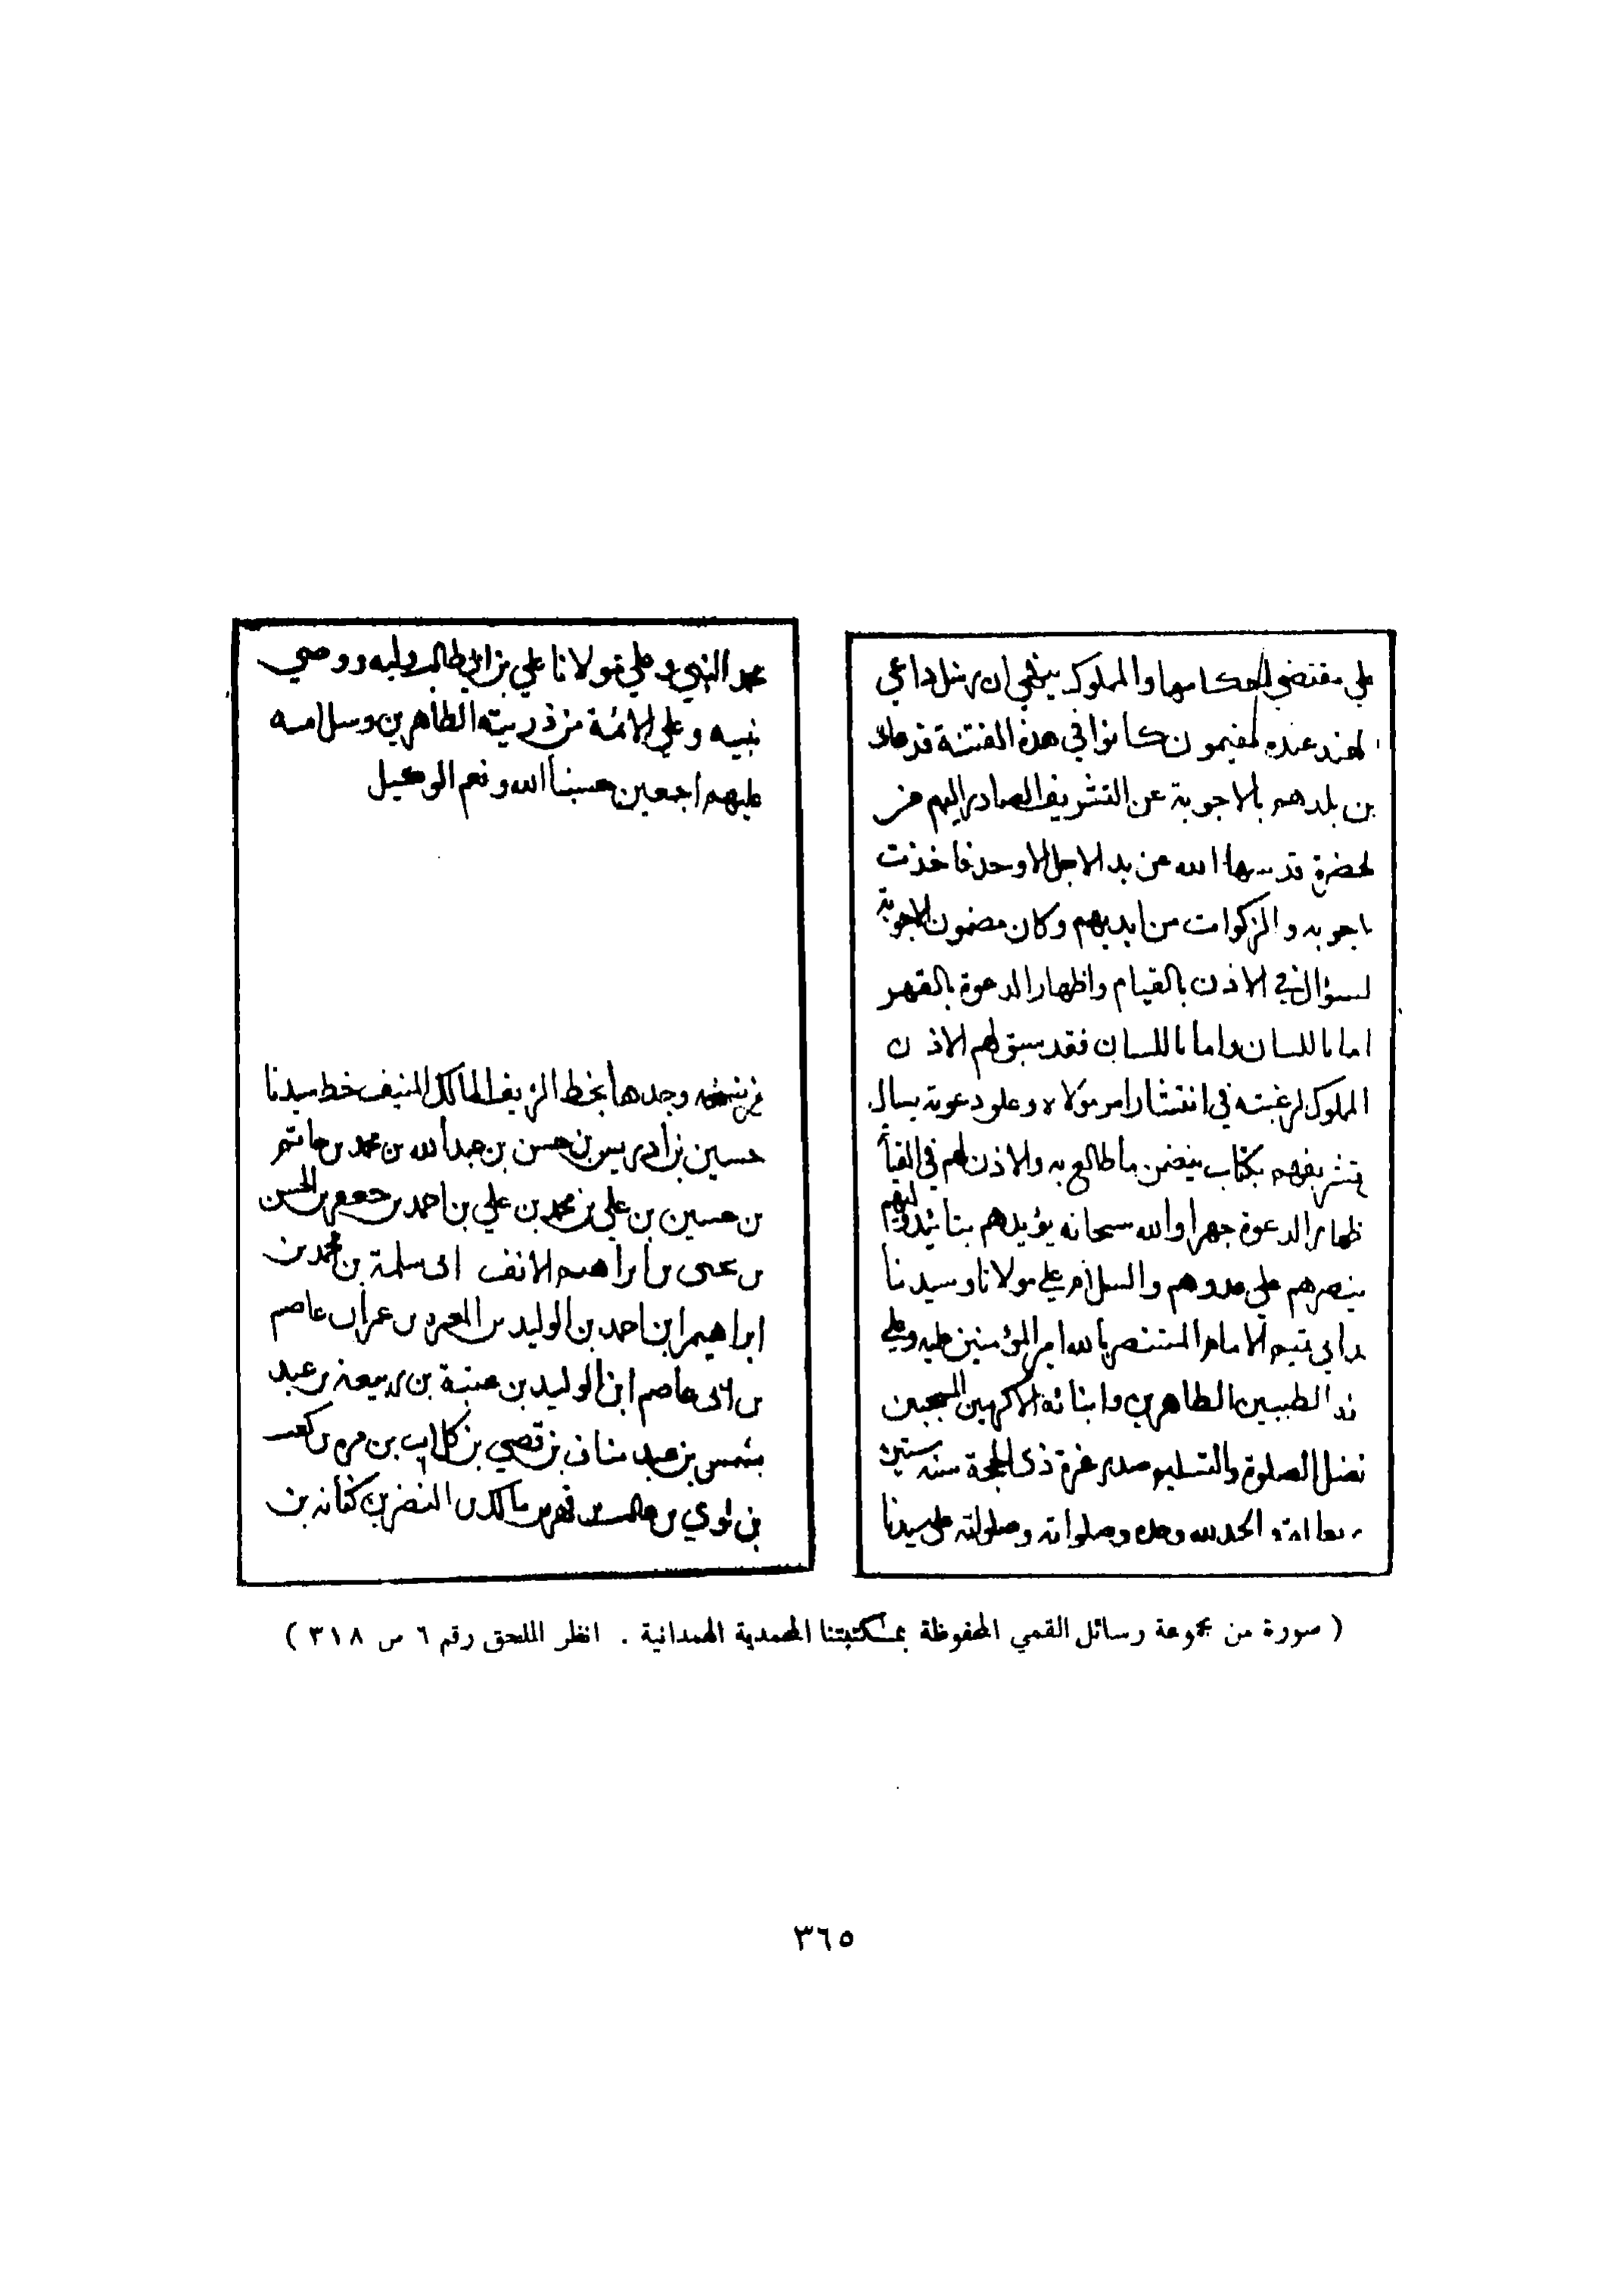 علي مقتضي احكامها والمملوك ينهي ان رسل داعي
لهند عنده مقيمون كانوا في هذه الفتنة قد
من بلدهم بالاجوبة عن التشريف الصادر اليهم من
لحضرة قدسها الله عن يد الاجل الاوحد فاخذت
اجوبه والزكوات من ايديهم وكان مضمون الاجوبة
لسؤال في الاذن بالقيام واظهار الدعوة بالقهر
اما باللسان واما باللسان فقد سبق لهم الاذن
المملوك لرغبته في انتشار امر مولاه وعلو دعوته يسال
تشريفهم بكتاب يتضمن ما طالع به والاذن لهم في القيا
ظهار الدعوة جهرا والله سبحانه يؤيدهم بتائيده
ينصرهم علي عدوهم والسلام علي مولانا وسيدنا
ابي تميم الامام المستنصر بالله امير المؤمنين عليه وعلي
الطيبين الطاهرين وابنائه الاكرمين
فضل الصلوة والتسليم صدر غرة ذي الحجة سنه ستين
الحمد لله وحده وصلواته علي سيدنا
محمد النبي وعلي مولانا علي بن ابي طالب وليه ووصي
نبيه وعلي الائمة من ذريته الطاهرين وسلامه
عليهم اجمعين حسبنا الله ونعم الوكيل
من نسخه وجدها بخط الشريف المالك المنيف خط سيدنا
حسين بن ادريس بن حسن بن عبد الله بن محمد بن حاتم
بن حسين بن علي بن محمد بن علي بن احمد بن جعفر بن الحسن
بن يحيى بن ابراهيم الانف ابى سلمة بن محمد بن
ابراهيم ابن احمد بن الوليد بن بن عمران عاصم
بن ابى عاصم ابن الوليد بن عتبة بن ربيعة بن عبد
شمس بن عبد مناف بن قصي بن كلاب بن مره بن كعب
بن لوي بن غالب بن فهر بن مالك بن النضر بن كنانه بن
( صورة من مجموعة رسائل القمي المحفوظة بمكتبتنا المحمدية الهمدانية . انظر الملحق رقم ٦ ص ٣١٨ )
٣٦٥